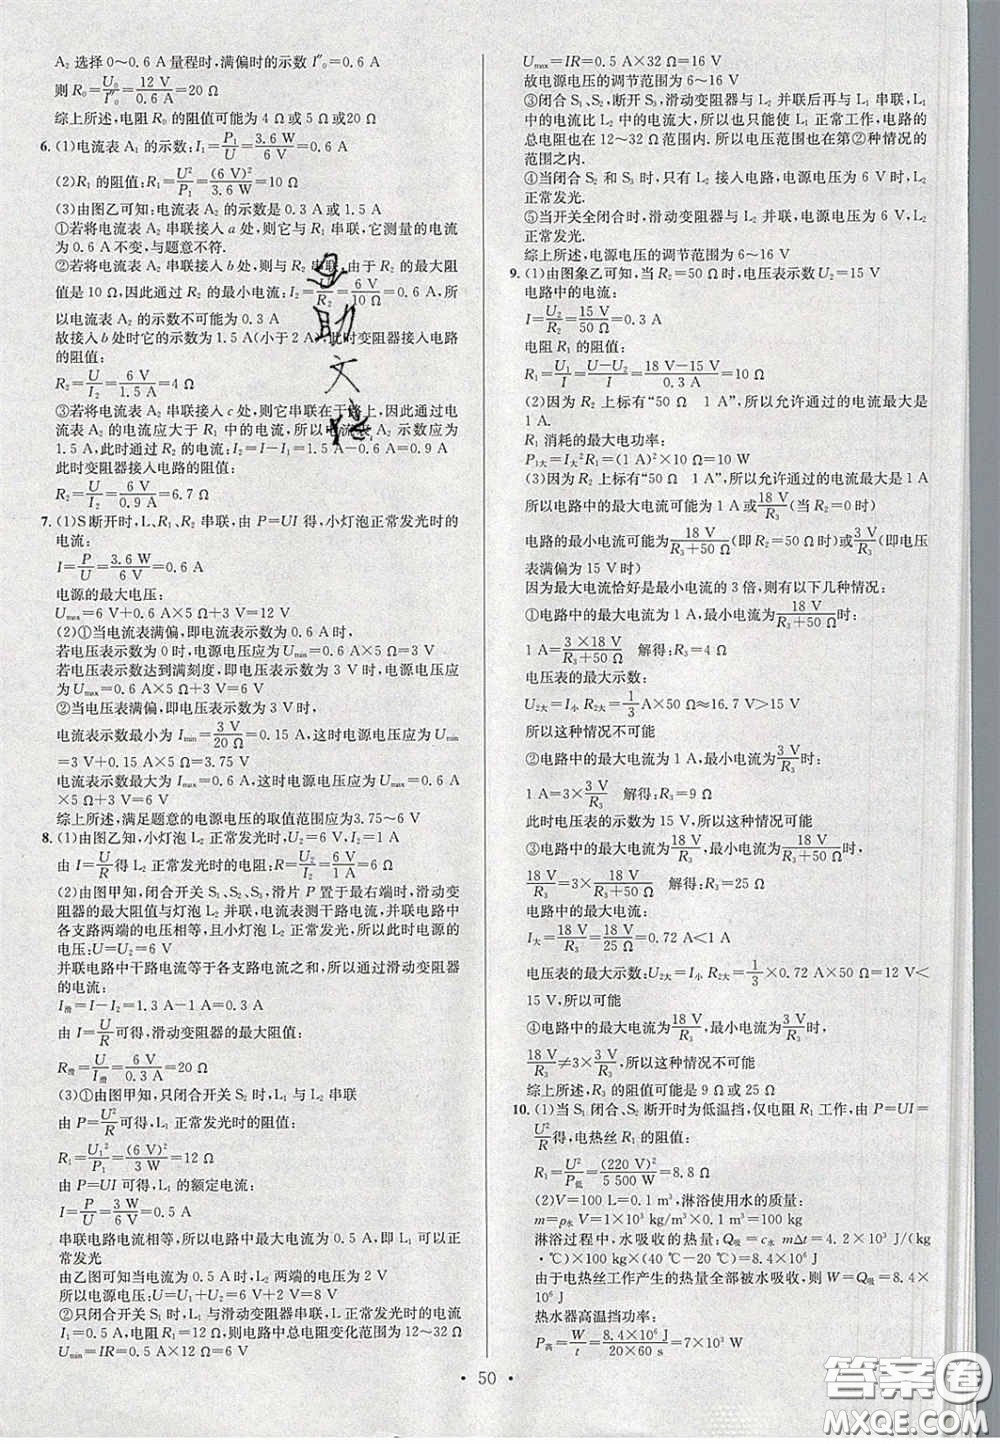 A₂ 选择 0~0.6 A 量程时,满偏时的示数 I″₀=0.6 A
则 R₀=U₀/I″₀=12 V/0.6 A=20 Ω
综上所述,电阻 R₀ 的阻值可能为 4 Ω 或 5 Ω 或20 Ω
6. (1)电流表 A₁ 的示数:I₁=P₁/U=3.6 W/6 V=0.6 A
(2)R₁ 的阻值:R₁=U²/P₁=(6 V)²/3.6 W=10 Ω
(3)由图乙可知:电流表 A₂ 的示数是 0.3 A 或 1.5 A
①若将电流表 A₂ 串联接入 a 处,则它与 R₁ 串联,它测量的电流
为 0.6 A 不变,与题意不符.
②若将电流表 A₂ 串联接入 b 处,则与 R₂ 串联,由于 R₂ 的最大阻
值是 10 Ω,因此通过 R₂ 的最小电流:I₂=U/R₂=6 V/10 Ω=0.6 A,所
以电流表 A₂ 的示数不可能为 0.3 A
故接入 b 处时它的示数为 1.5 A(小于 2 A),此时变阻器接入电路
的阻值:
R₂=U/I₂=6 V/1.5 A=4 Ω
③若将电流表 A₂ 串联接入 c 处,则它串联在干路上,因此通过电
流表 A₂ 的电流应大于 R₁ 中的电流,所以电流表 A₂ 示数应为
1.5 A,此时通过 R₂ 的电流:I₂=I-I₁=1.5 A-0.6 A=0.9 A
此时变阻器接入电路的阻值:
R₂=U/I₂=6 V/0.9 A=6.7 Ω
7. (1)S断开时,L、R₁、R₂ 串联,由 P=UI 得,小灯泡正常发光时的
电流:
I=P/U=3.6 W/6 V=0.6 A
电源的最大电压:
Umax=6 V+0.6 A×5 Ω+3 V=12 V
(2)①当电流表满偏,即电流表示数为 0.6 A 时,
若电压表示数为 0 时,电源电压应为 Umin=0.6 A×5 Ω=3 V
若电压表示数达到满刻度,即电压表示数为 3 V 时,电源电压应
为 Umax=0.6 A×5 Ω+3 V=6 V
②当电压表满偏,即电压表示数为 3 V 时,
电流表示数最小为 Imin=3 V/20 Ω=0.15 A,这时电源电压应为 Umin
=0.15 A×5 Ω+3 V=3.75 V
电流表示数最大为 Imax=0.6 A,这时电源电压应为 Umax=0.6 A
×5 Ω+3 V=6 V
综上所述,满足题意的电源电压的取值范围应为3.75~6 V
8. (1)由图乙知,小灯泡 L₂ 正常发光时,U₂=6 V,I₂=1 A
由 I=U/R得 L₂ 正常发光时的电阻:R=U₂/I₂=6 V/1 A=6 Ω
(2)由图甲知,闭合开关 S₁、S₂、S₃,滑片 P 置于最右端时,滑动变
阻器的最大阻值与灯泡 L₂ 并联,电流表测干路电流,并联电路中
各支路两端的电压相等,且小灯泡 L₂ 正常发光,所以此时电源的
电压:U=U₂=6 V
并联电路中干路电流等于各支路电流之和,所以通过滑动变阻器
的电流:
I滑=I-I₂=1.3 A-1 A=0.3 A
由 I=U/R可得,滑动变阻器的最大阻值:
R滑=U/I滑=6 V/0.3 A=20 Ω
(3)①由图甲知,只闭合开关 S₂ 时,L₂ 与 L₁ 串联
由 P=U²/R可得,L₁ 正常发光时的电阻:
R₁=U₁²/P₁=(6 V)²/3 W=12 Ω
由 P=UI 可得,L₁ 的额定电流:
I=P/U=3 W/6 V=0.5 A
串联电路电流相等,所以电路中最大电流为 0.5 A,即 L₁ 可以正
常发光
由乙图可知当电流为 0.5 A 时,L₂ 两端的电压为 2 V
所以电源电压:U=U₁+U₂=6 V+2 V=8 V
②只闭合开关 S₁ 时,L₁与滑动变阻器串联,L₁ 正常发光时的电流
I₁=0.5 A,电阻 R₁=12 Ω,则电路中总电阻变化范围为 12~32 Ω
Umin=IR=0.5 A×12 Ω=6 V
Umax=IR=0.5 A×32 Ω=16 V
故电源电压的调节范围为 6~16 V
③闭合 S₁、S₂,断开 S₃,滑动变阻器与 L₂ 并联后再与 L₁ 串联,L₁
中的电流比 L₂ 中的电流大,所以也只能使 L₁ 正常工作,电路的
总电阻也在 12~32 Ω 范围内.所以电压范围也在第②种情况的
范围之内.
④当闭合 S₂ 和 S₃ 时,只有 L₂ 接入电路,电源电压为 6 V 时,L₂
正常发光.
⑤当开关全闭合时,滑动变阻器与 L₂ 并联,电源电压为 6 V 时,L₂
正常发光.
综上所述,电源电压的调节范围为 6~16 V
9. (1)由图象乙可知,当 R₂=50 Ω时,电压表示数 U₂=15 V
电路中的电流:
I=U₂/R₂=15 V/50 Ω=0.3 A
电阻 R₁ 的阻值:
R₁=U₁/I=U-U₂/I=18 V-15 V/0.3 A=10 Ω
(2)因为 R₂ 上标有“50 Ω 1 A”,所以允许通过的电流最大是
1 A.
R₁ 消耗的最大电功率:
P₁大=I大²R₁=(1 A)²×10 Ω=10 W
(3)因为 R₂ 上标有“50 Ω 1 A”,所以允许通过的电流最大是 1 A
所以电路中的最大电流可能为 1 A或18 V/R₃(当 R₂=0时)
电路的最小电流可能为18 V/R₃+50 Ω(即 R₂=50 Ω时)或3 V/R₃(即电压
表满偏为 15 V时)
因为最大电流恰好是最小电流的 3 倍,则有以下几种情况:
①电路中的最大电流为 1 A,最小电流为18 V/R₃+50 Ω时:
1 A=3×18 V/R₃+50 Ω 解得:R₃=4 Ω
电压表的最大示数:
U₂大=I小 R₂大=1/3 A×50 Ω≈16.7 V>15 V
所以这种情况不可能
②电路中的最大电流为 1 A,最小电流为3 V/R₃时:
1 A=3×3 V/R₃ 解得:R₃=9 Ω
此时电压表示数为 15 V,所以这种情况可能
③电路中的最大电流为18 V/R₃,最小电流为18 V/R₃+50 Ω时:
18 V/R₃=3×18 V/R₃+50 Ω 解得:R₃=25 Ω
电路中的最大电流:
I大=18 V/R₃=18 V/25 Ω=0.72 A<1 A
电压表的最大示数:U₂大=I小 R₂大=1/3×0.72 A×50 Ω=12 V<
15 V,所以可能
④电路中的最大电流为18 V/R₃,最小电流为3 V/R₃时,
18 V/R₃≠3×3 V/R₃,所以这种情况不可能
综上所述,R₃ 的阻值可能是 9 Ω 或 25 Ω
10. (1)当 S₁ 闭合、S₂ 断开时为低温挡,仅电阻 R₁ 工作,由 P=UI=
U²/R得,电热丝 R₁ 的阻值:
R₁=U²/P低=(220 V)²/5 500 W=8.8 Ω
(2)V=100 L=0.1 m³,淋浴使用水的质量:
m=ρ水 V=1×10³ kg/m³×0.1 m³=100 kg
淋浴过程中,水吸收的热量:Q吸=c水 mΔt=4.2×10³ J/(kg
·℃)×100 kg×(40 ℃-20 ℃)=8.4×10⁶ J
由于电热丝工作产生的热量全部被水吸收,则 W=Q吸=8.4×
10⁶ J
热水器高温挡功率:
P高=W/t=8.4×10⁶ J/20×60 s=7×10³ W
· 50 ·
答案圈
MXQE.COM